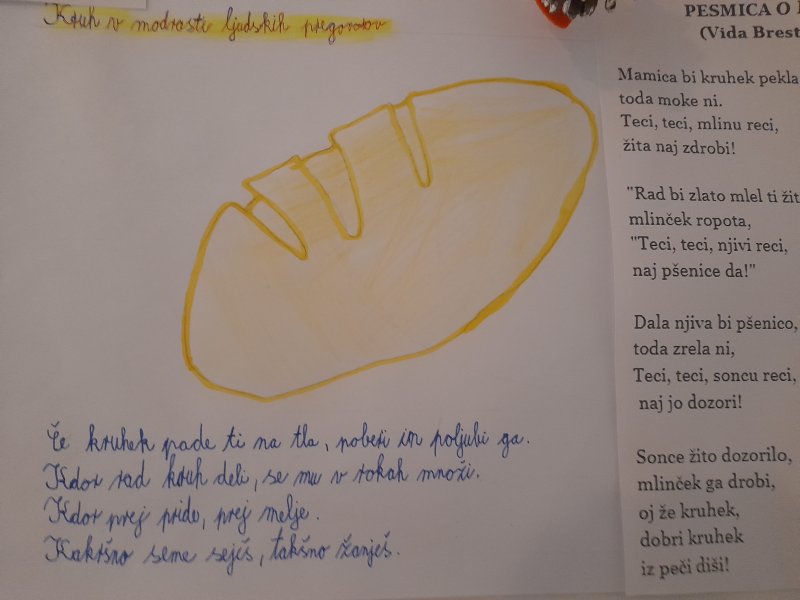 Kruh v modrosti ljudskih pregovorov
Če kruhek pade ti na tla, poberi in poljubi ga.
Kdor rad kruh deli, se mu v rokah množi.
Kdor prej pride, prej melje.
Kakršno seme seješ, takšno žanješ.
PESMICA O
(Vida Brest
Mamica bi kruhek pekla
toda moke ni.
Teci, teci, mlinu reci,
žita naj zdrobi!
"Rad bi zlato mlel ti žit
mlinček ropota,
"Teci, teci, njivi reci,
naj pšenice da!"
Dala njiva bi pšenico,
toda zrela ni,
Teci, teci, soncu reci,
naj jo dozori!
Sonce žito dozorilo,
mlinček ga drobi,
oj že kruhek,
dobri kruhek
iz peči diši!